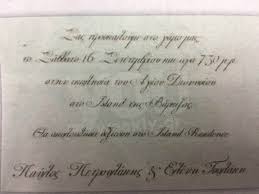 Σας προσκαλούμε στο γάμο μας
το Σάββατο 16 Σεπτεμβρίου και ώρα 7.30 μμ
στην εκκλησία του Αγίου
στο Island της Βάρκιζας
Θα ακολουθήσει δεξίωση στο Island Residence
Παύλος Πετροφιλάκης & Ελένη